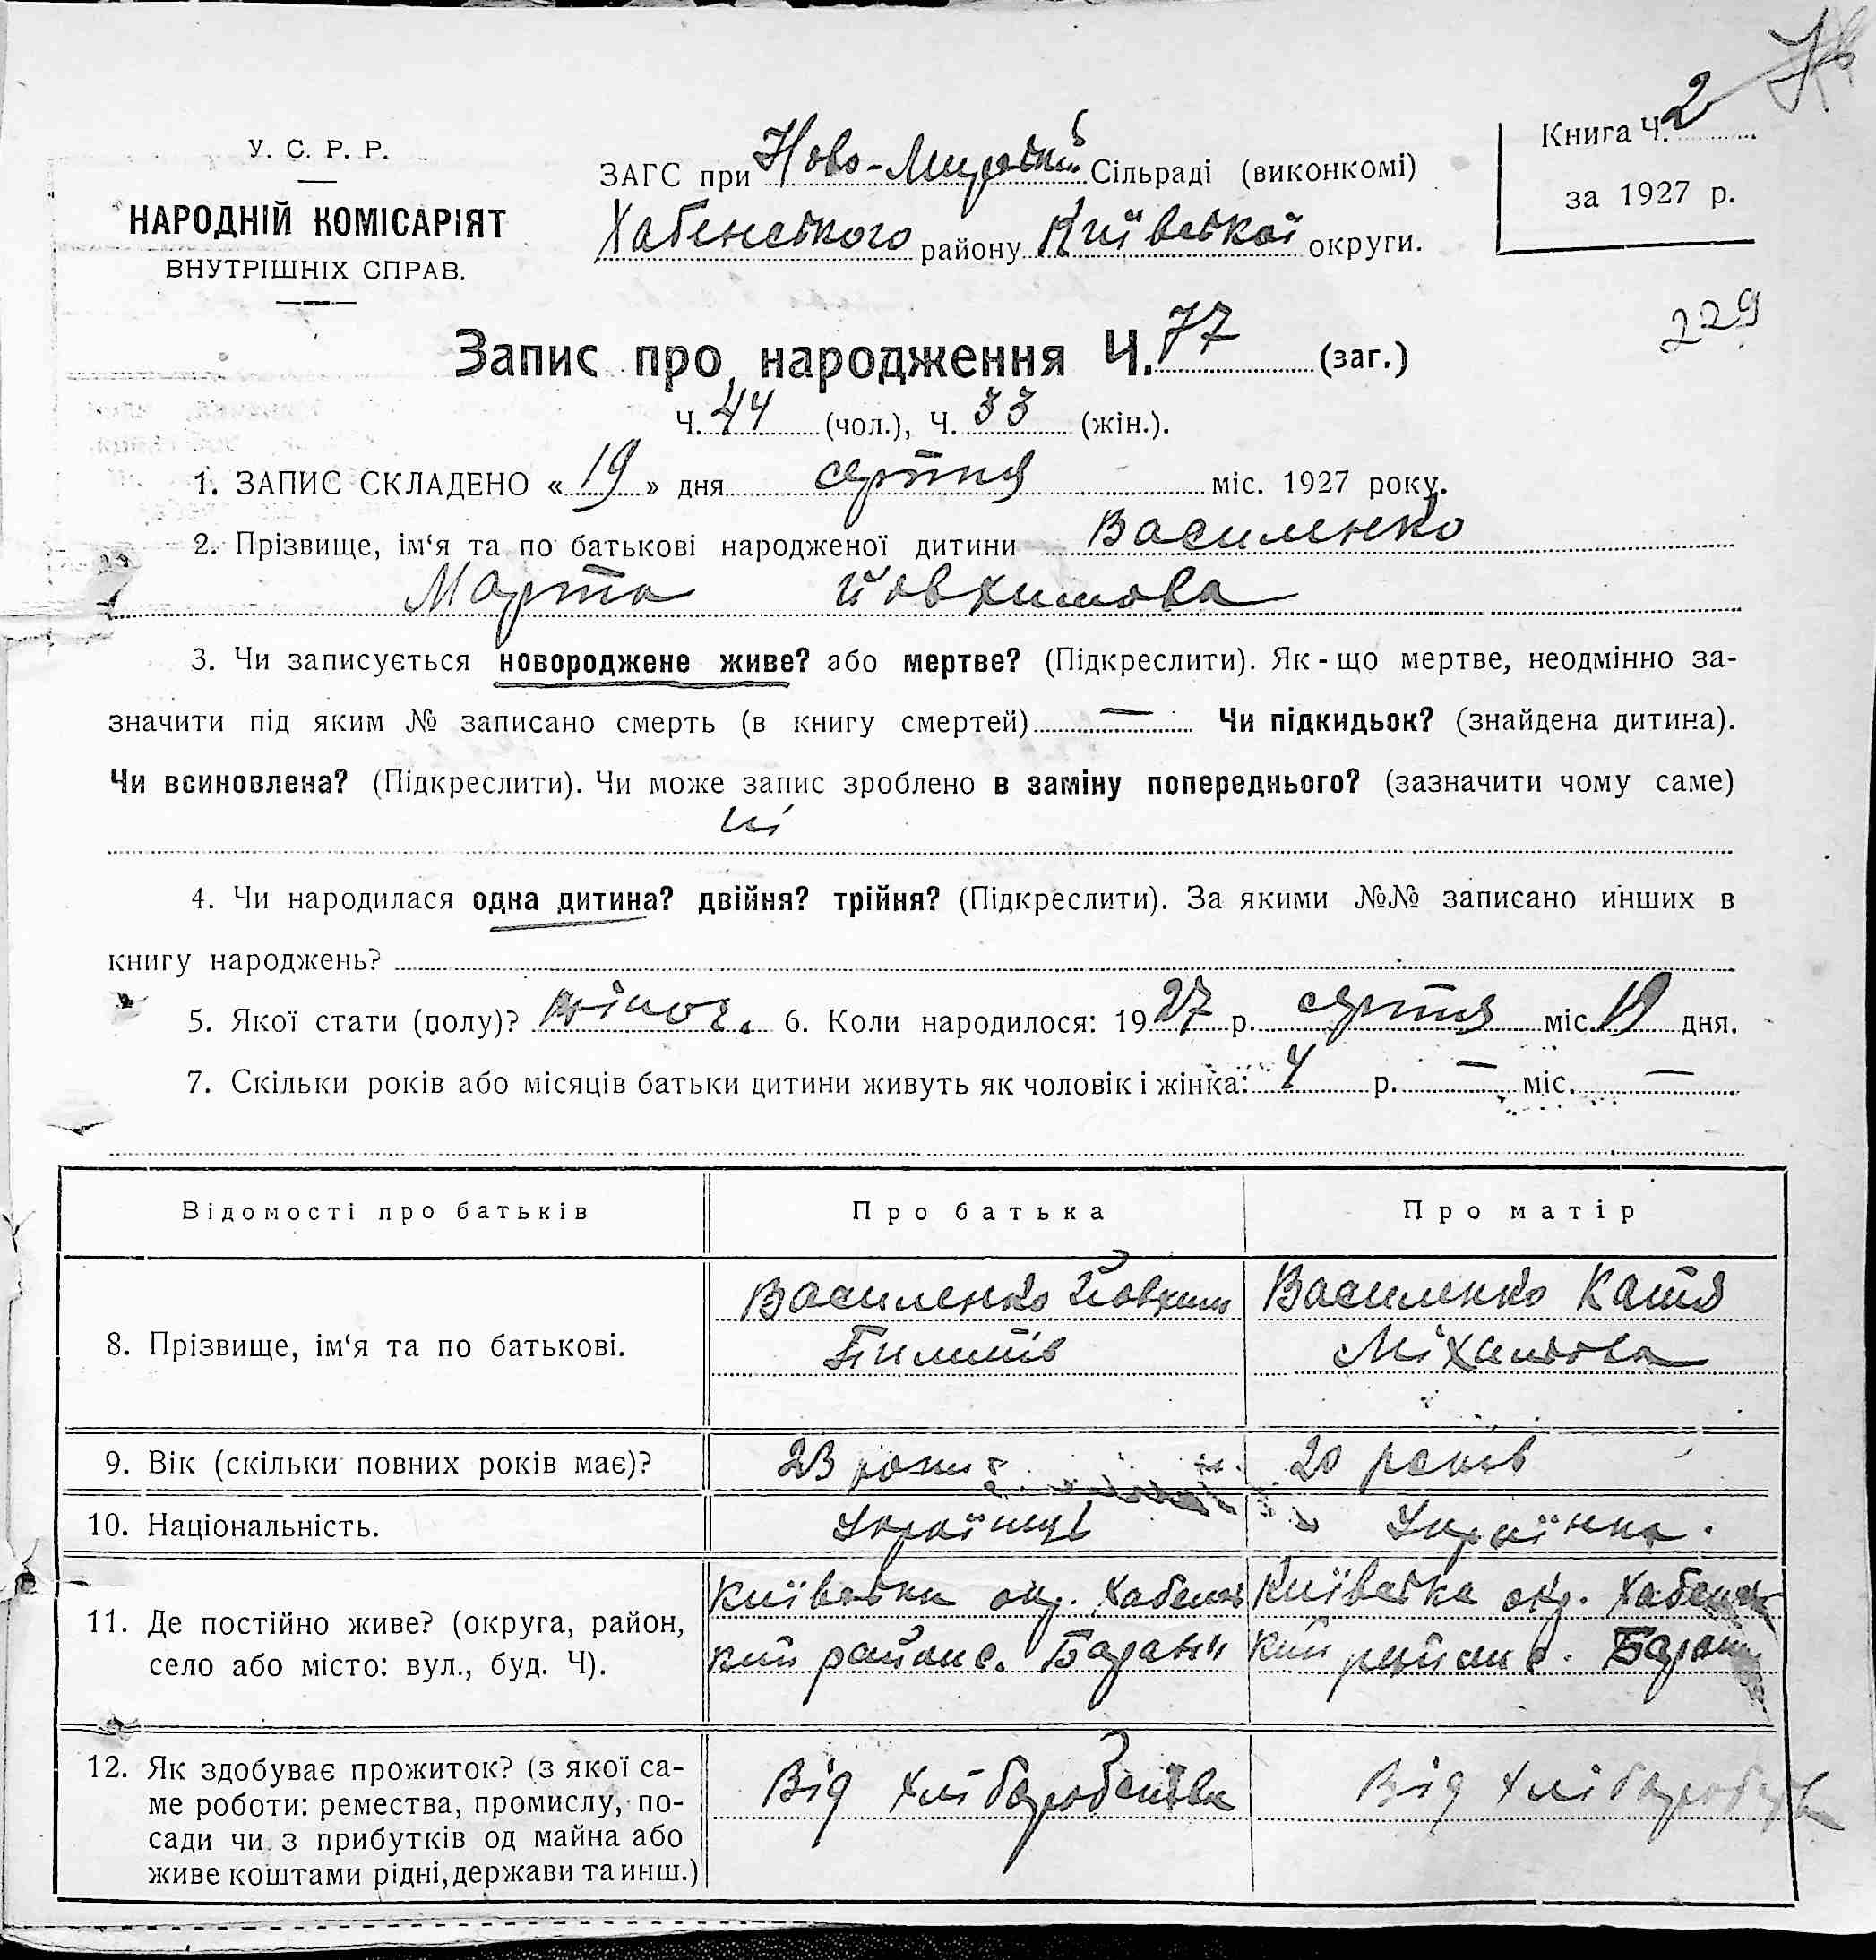 Книга Ч. 2
за 1927 р.
У. С. Р. Р.
НАРОДНІЙ КОМІСАРІЯТ
ВНУТРІШНІХ СПРАВ.
ЗАГС при Ново-Мирській Сільраді (виконкомі)
Хабенського району Київської округи.
229
Запис про народження Ч. 77 (заг.)
Ч. 44 (чол.), Ч. 33 (жін.).
1. ЗАПИС СКЛАДЕНО « 19 » дня серпня міс. 1927 року.
2. Прізвище, ім‘я та по батькові народженої дитини Василенко
Марта Йовхимова
3. Чи записується новороджене живе? або мертве? (Підкреслити). Як-що мертве, неодмінно за-
значити під яким № записано смерть (в книгу смертей) — Чи підкидьок? (знайдена дитина).
Чи всиновлена? (Підкреслити). Чи може запис зроблено в заміну попереднього? (зазначити чому саме)
ні
4. Чи народилася одна дитина? двійня? трійня? (Підкреслити). За якими №№ записано инших в
книгу народжень?
5. Якої стати (полу)? жіноч. 6. Коли народилося: 1927 р. серпня міс. 19 дня.
7. Скільки років або місяців батьки дитини живуть як чоловік і жінка: 4 р. — міс. —
Відомості про батьків Про батька Про матір
8. Прізвище, ім‘я та по батькові.
Василенко Йовхим
Пилипів
Василенко Катя
Міхайлова
9. Вік (скільки повних років має)? 23 роки 20 років
10. Національність. Українець Українка.
11. Де постійно живе? (округа, район,
село або місто: вул., буд. Ч).
Київська окр. Хабенс
кий район с. Барани
Київська окр. Хабенсь
кий район с. Барани
12. Як здобуває прожиток? (з якої са-
ме роботи: ремества, промислу, по-
сади чи з прибутків од майна або
живе коштами рідні, держави та инш.)
Від хліборобства
Від хліборобства